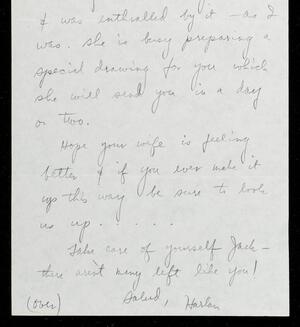 & was enthralled by it – as I
was. She is busy preparing a
special drawing for you which
she will send you in a day
or two.
Hope your wife is feeling
better & if you ever make it
up this way be sure to look
us up . . . . .
Take care of yourself Jack –
there aren't many left like you!
(over) Salud, Harlan